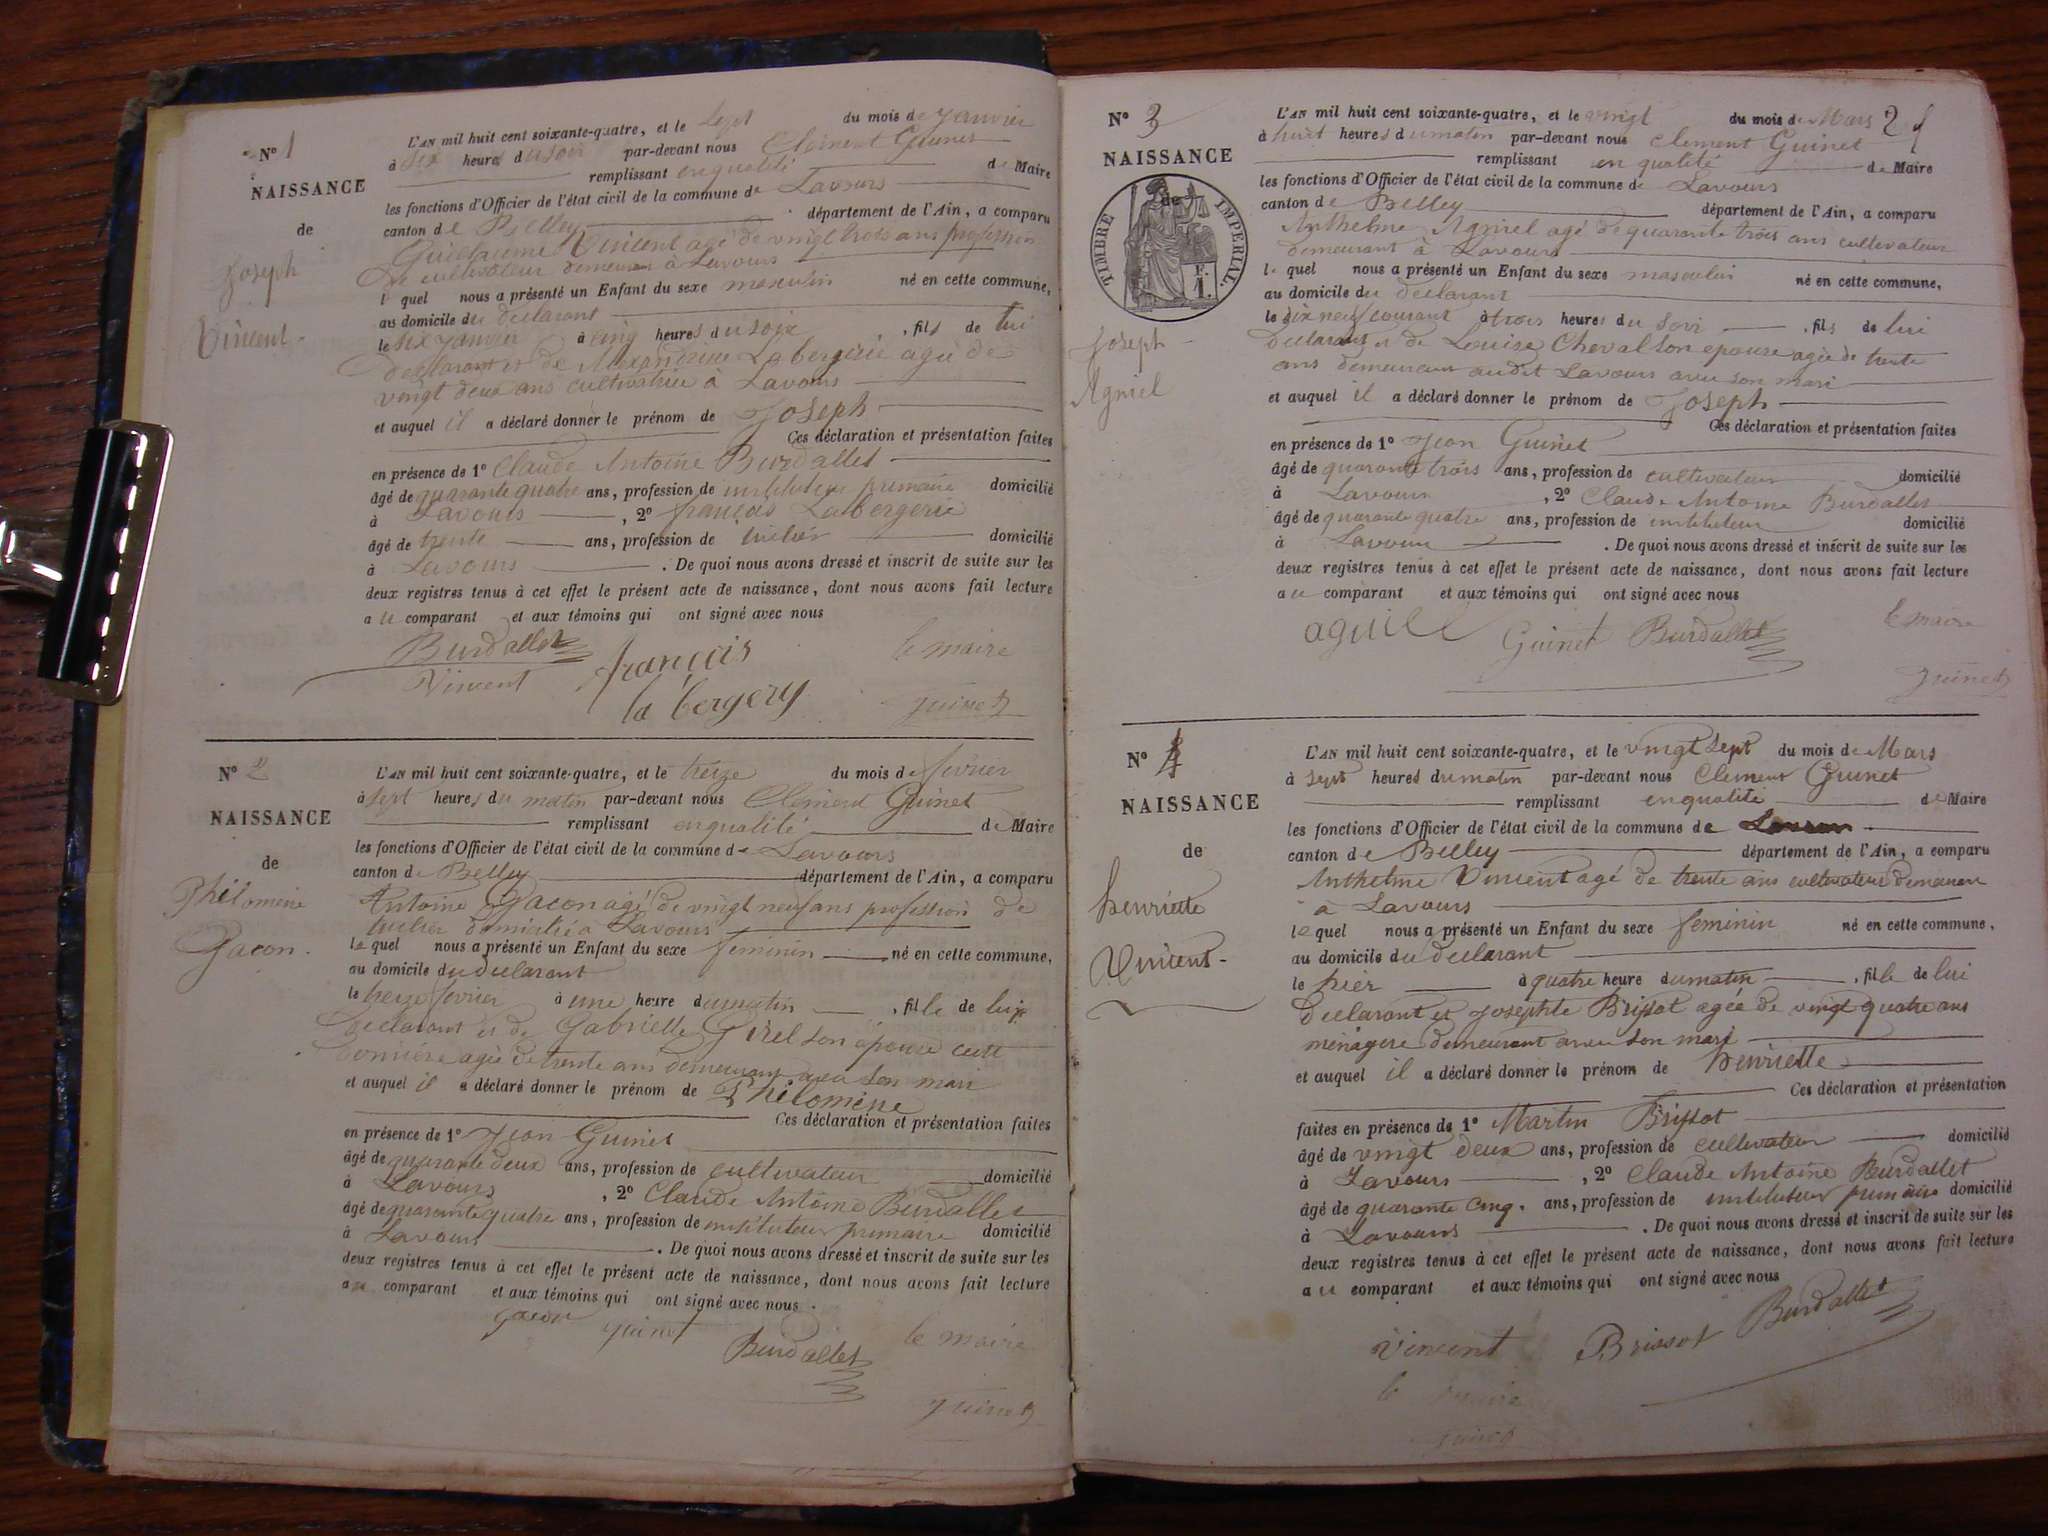 N° 1
NAISSANCE
de
Joseph
Vincent
L'AN mil huit cent soixante-quatre, et le sept du mois de janvier
à six heures du soir par-devant nous Clément Guinet
remplissant en qualité de Maire
les fonctions d'Officier de l'état civil de la commune de Lavours
canton de Belley département de l'Ain, a comparu
Guillaume Vincent agé de vingt trois ans profession
de cultivateur demeurant à Lavours
lequel nous a présenté un Enfant du sexe masculin né en cette commune,
au domicile du déclarant
le six janvier à cinq heures du soir, fils de lui
déclarant et de Alexandrine Labergerie agée de
vingt deux ans cultivatrice à Lavours
et auquel il a déclaré donner le prénom de Joseph
Ces déclaration et présentation faites
en présence de 1° Claude Antoine Burdallet
âgé de quarante quatre ans, profession de instituteur primaire domicilié
à Lavours, 2° françois Labergerie
âgé de trente ans, profession de tuilier domicilié
à Lavours. De quoi nous avons dressé et inscrit de suite sur les
deux registres tenus à cet effet le présent acte de naissance, dont nous avons fait lecture
au comparant et aux témoins qui ont signé avec nous
Burdallet
Vincent françois le maire
la bergery guinet
N° 2
NAISSANCE
de
Philomène
Gacon.
L'AN mil huit cent soixante-quatre, et le treize du mois de février
à sept heures du matin par-devant nous Clément Guinet
remplissant en qualité de Maire
les fonctions d'Officier de l'état civil de la commune de Lavours
canton de Belley département de l'Ain, a comparu
Antoine Gacon agé de vingt neuf ans profession de
tuilier domicilié à Lavours
lequel nous a présenté un Enfant du sexe feminin né en cette commune,
au domicile du declarant
le treize fevrier à une heure du matin, fille de lui
declarant et de Gabrielle Girel son épouse cette
dernière agée de trente ans demeurant avec son mari
et auquel il a déclaré donner le prénom de Philomène
Ces déclaration et présentation faites
en présence de 1° Jean Guinet
âgé de quarante deux ans, profession de cultivateur domicilié
à Lavours, 2° Claude Antoine Burdallet
âgé de quarante quatre ans, profession de instituteur primaire domicilié
à Lavours. De quoi nous avons dressé et inscrit de suite sur les
deux registres tenus à cet effet le présent acte de naissance, dont nous avons fait lecture
au comparant et aux témoins qui ont signé avec nous.
gacon guinet
Burdallet le maire
guinet
N° 3
NAISSANCE
de
TIMBRE IMPERIAL
F. 1.
Joseph
Agniel
L'AN mil huit cent soixante-quatre, et le vingt du mois de Mars 2
à huit heures du matin par-devant nous Clément Guinet
remplissant en qualité de Maire
les fonctions d'Officier de l'état civil de la commune de Lavours
canton de Belley département de l'Ain, a comparu
Anthelme Agniel agé de quarante trois ans cultivateur
demeurant à Lavours
lequel nous a présenté un Enfant du sexe masculin né en cette commune,
au domicile du declarant
le dix neuf courant à trois heures du soir, fils de lui
declarant et de Louise Cheval son epouse agée de trente
ans demeurant audit Lavours avec son mari
et auquel il a déclaré donner le prénom de Joseph
Ces déclaration et présentation faites
en présence de 1° Jean Guinet
âgé de quarante trois ans, profession de cultivateur domicilié
à Lavours, 2° Claude Antoine Burdallet
âgé de quarante quatre ans, profession de instituteur domicilié
à Lavours. De quoi nous avons dressé et inscrit de suite sur les
deux registres tenus à cet effet le présent acte de naissance, dont nous avons fait lecture
au comparant et aux témoins qui ont signé avec nous
Guinet Burdallet le maire
guinet
N° 4
NAISSANCE
de
henriette
Vincent
L'AN mil huit cent soixante-quatre, et le vingt sept du mois de Mars
à sept heures du matin par-devant nous Clément Guinet
remplissant en qualité de Maire
les fonctions d'Officier de l'état civil de la commune de
canton de Belley département de l'Ain, a comparu
Anthelme Vincent agé de trente ans cultivateur demeurant
à Lavours
lequel nous a présenté un Enfant du sexe feminin né en cette commune,
au domicile du declarant
le hier à quatre heure du matin, fille de lui
declarant et Josephte Brissot agée de vingt quatre ans
ménagère demeurant avec son mari
et auquel il a déclaré donner le prénom de henriette
Ces déclaration et présentation
faites en présence de 1° Martin Brissot
âgé de vingt deux ans, profession de cultivateur domicilié
à Lavours, 2° Claude Antoine Burdallet
âgé de quarante cinq. ans, profession de instituteur primaire domicilié
à Lavours. De quoi nous avons dressé et inscrit de suite sur les
deux registres tenus à cet effet le présent acte de naissance, dont nous avons fait lecture
au comparant et aux témoins qui ont signé avec nous
Vincent Brissot Burdallet
le maire
guinet